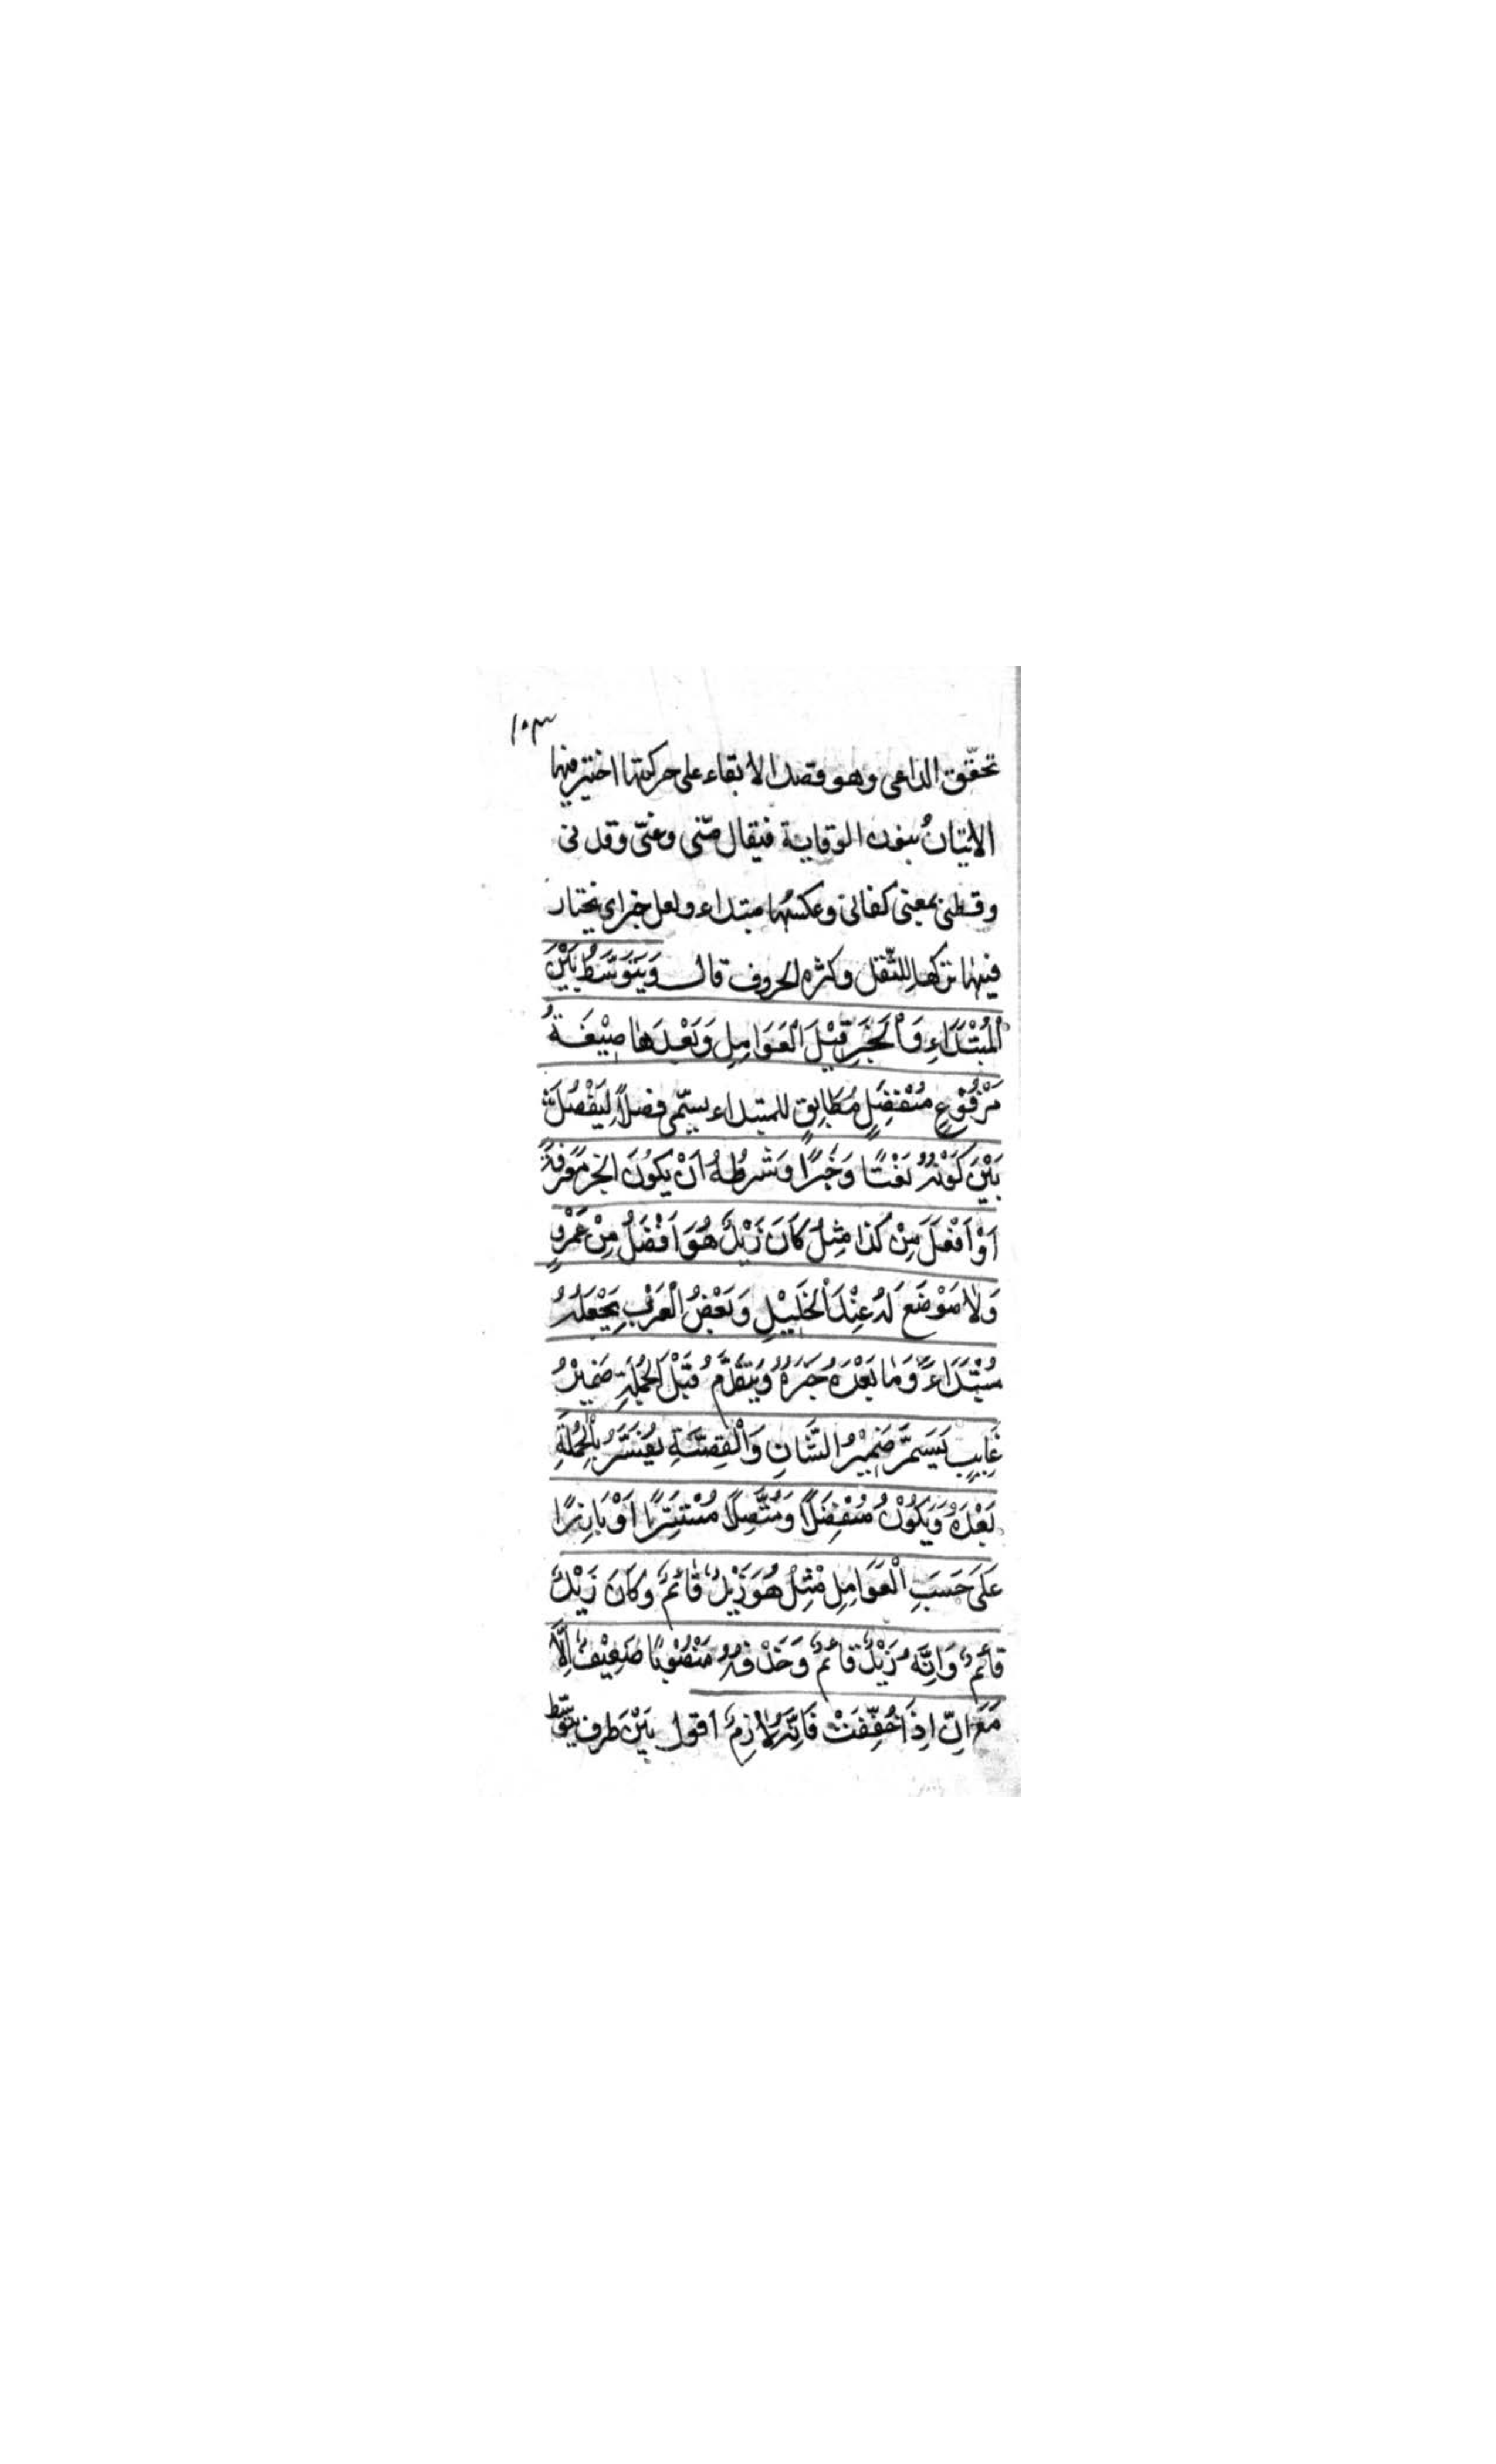 ١٠٣
تحقّق الداعى وهو قصد الابقاء على حركتها اختير فيها
الاتيانُ بنون الوقاية فيقال منّى وعنّى وقدنى
وقطنى بمعنى كفانى وعكسُها مبتداء ولعل خبر اى يختار
فيهٰا تركها للثّقل وكثره الحروف قال وَيَتَوَسَّطُ بَيْنَ
الْمُبْتَدَاءِ وَالْخَبَرِ قَبْلَ الْعَوَامِلِ وَبَعْدَهٰا صِيْغَةُ
مَرْفُوْعٍ مُنْفَصِلٍ مُطَابِقٍ للمبتداء يسمّى فصلاً لِيَفْصُلَ
بَيْنَ كَوْنِهٖ نَعْتًا وَخَبَرًا وَشَرطُهُ اَنْ يَكُوُنَ الخبر مَعْرِفَةً
اَوْ اَفْعَلَ مِنْ كَذا مِثْلُ كَانَ زَيْدٌ هُوَ اَفْضَلُ مِنْ عَمْرٍو
وَلاٰ مَوْضَعَ لَهُ عِنْدَ الْخَلِيْلِ وَبَعْضُ الْعَرَبِ يَجْعَلُهُ
مُبْتَدَاءً وَمٰا بَعْدَهُ خَبَرَهُ وَيَتَقَدَّمُ قَبْلَ الْجُمْلَةِ ضَمِيْرُ
غَايِبٍ يُسَمّٰى ضَمِيْرُ الشَّانِ وَالْقِصَّةِ يُفَسَّرُ بِالْجُمْلَةِ
بَعْدَهُ وَيَكُوْنُ مُنْفَصِلًا وَمُتَّصِلًا مُسْتَتِرًا اَوْ بَارِزًا
عَلىَ حَسَبِ الْعَوَامِلِ مْثِلُ هُوَ زَيْدٌ قَائمٌ وَكَانَ زَيْدٌ
قائمٌ وَاِنَّهُ زَيْدٌ قائمٌ وَحَذْفُهُ مَنْصُوْبًا ضَعِيْفٌ اِلَّا
مَعَ اِنّ اِذَا خُفِّفَتْ فَاِنَّهُ لاٰزِمٌ اقول بَيْنَ طرف يتوسّط